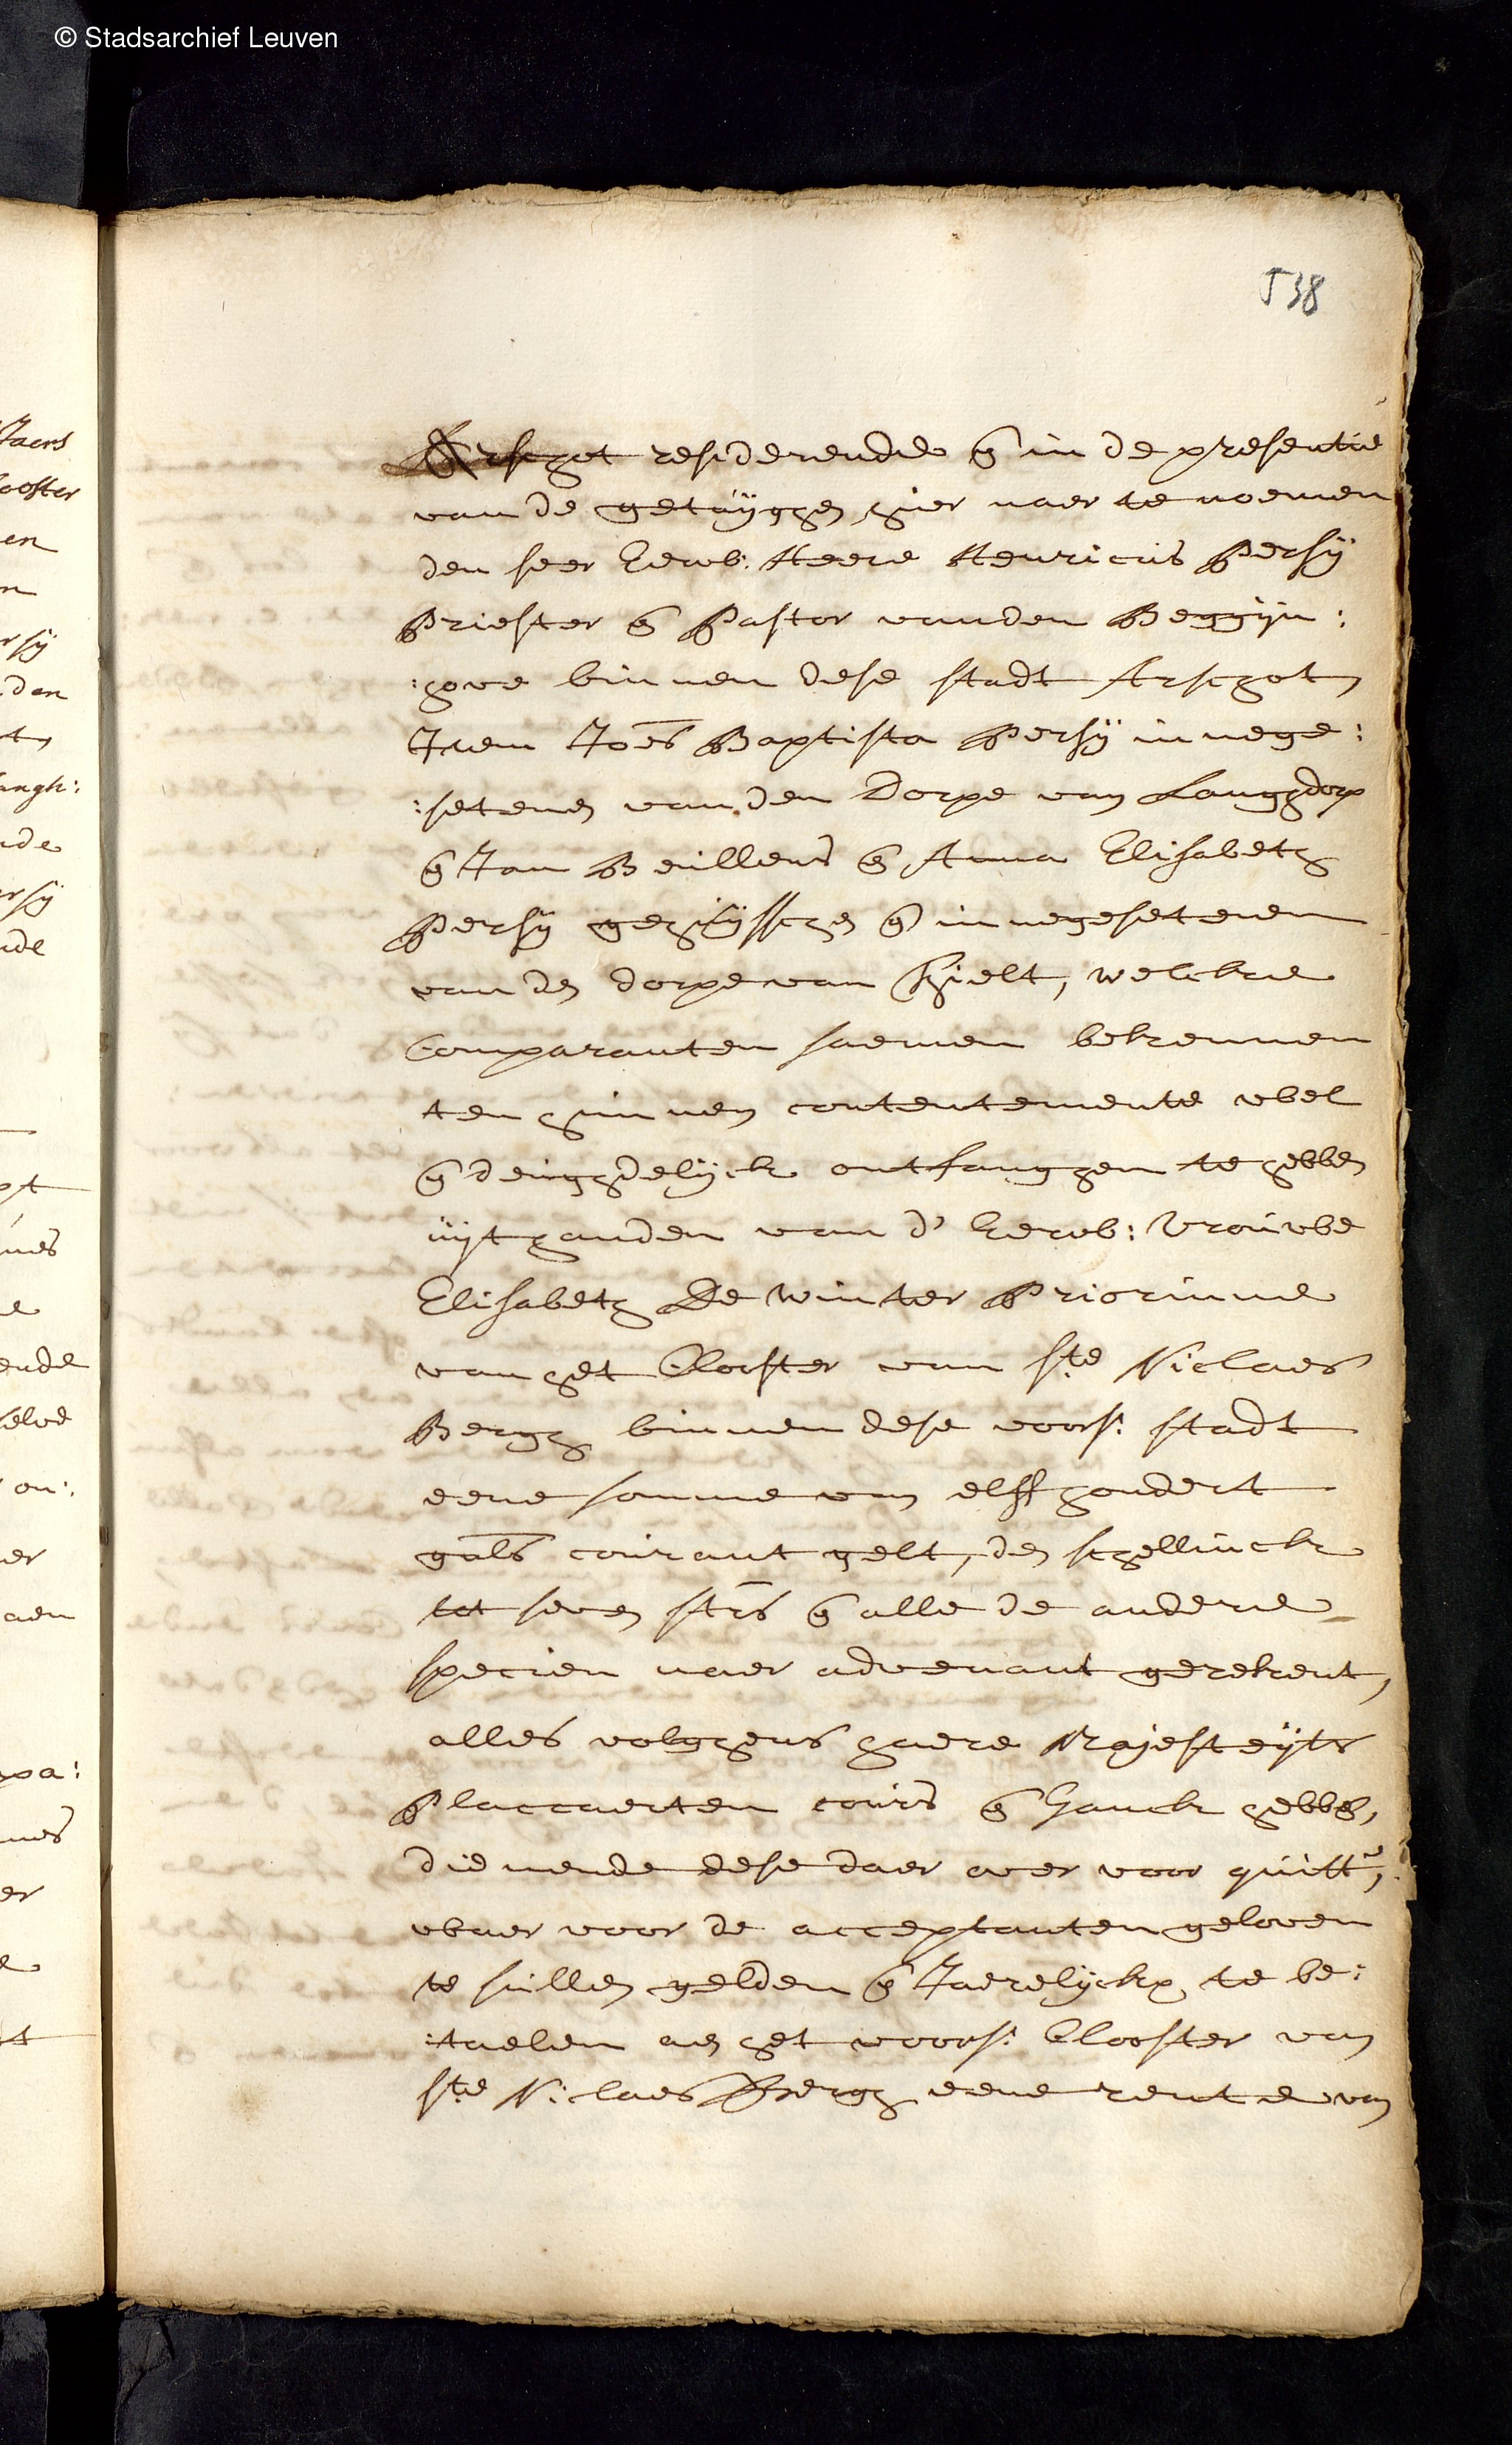 © Stadsarchief Leuven
538
Arschot residerende en in de presentie
van de getuÿghen hier naer te noemen
den seer Eerw: Heere Henricus Persÿ
Priester en Pastor vanden Beggijn:
:hove binnen dese stadt Arschot
Item Joēs Baptista Persÿ innege:
:setenen van den Dorpe van Langhdorp
en Jan Beullens en Anna Elisabeth
Persÿ gehuÿsschen en innegesetenen
van den dorpe van Thielt, welcke
Comparanten saemen bekennen
ten hunnen contentemente wel
en deughdelijck ontfanghen te hebben
uÿt handen van d' Eerw: Vrouwe
Elisabeth De Winter Priorinne
van het Clooster van ste Niclaes
Bergh binnen dese voors: stadt
eene somme van elff hondert
guls courant gelt, den schellinck
tot seven strs en alle de andere
specien naer advenant gerekent,
alles volghens haere Majesteÿts
Placcaerten cours en Ganck hebben,
dienende dese daer over voor quittē,
waer voor de acceptanten geloven
te sullen gelden en Jaerelijckx te be:
:taelen aen het voors: Clooster van
ste Niclaes Bergh eene rente van
Jaers
ooster
en
n
rsÿ
den
angh:
nde
rsÿ
nde
ende
on:
er
aen
pa:
er